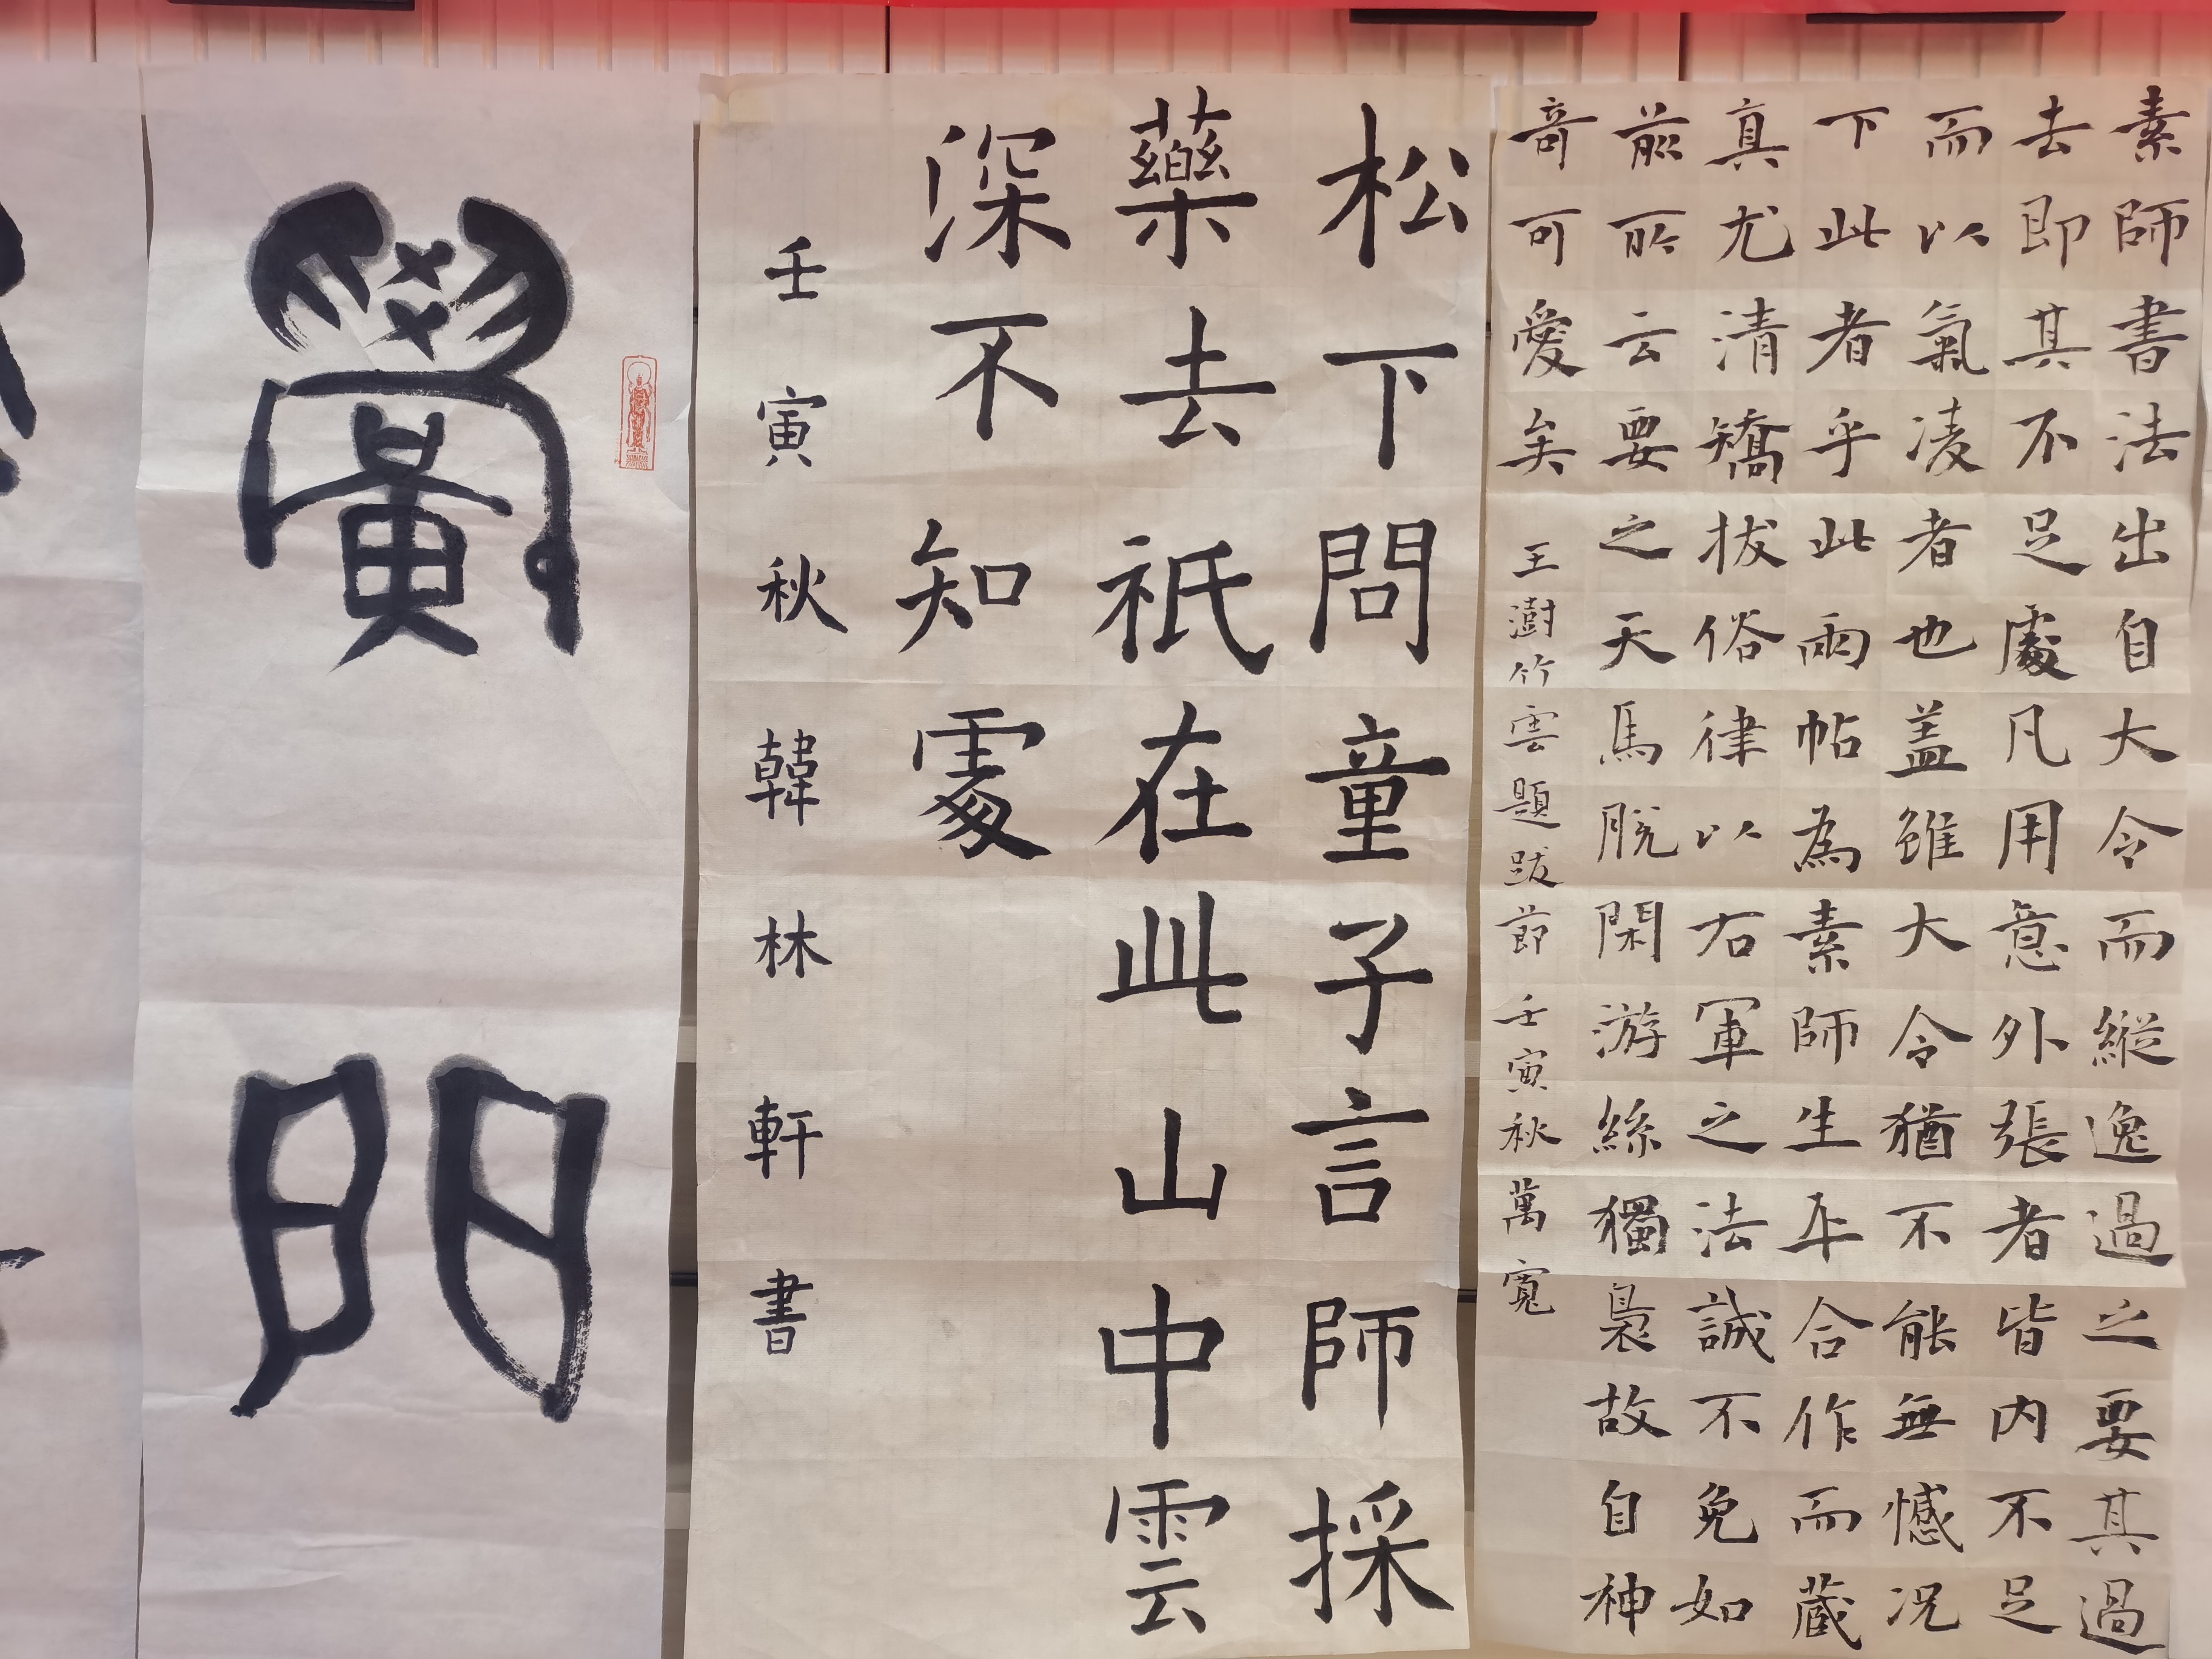 素師書法出自大令而縱逸過之要其過
去即其不足處凡用意外張者皆内不足
而以氣凌者也盖雖大令猶不能無憾况
下此者乎此兩帖為素師生平合作而蔵
真尤清矯拔俗律以右軍之法誠不免如
前所云要之天馬脱閑游絲獨裊故自神
奇可愛矣 王澍竹雲題跋節 壬寅秋萬寬
松下問童子言師採
藥去祇在此山中雲
深不知處
壬寅秋韓林軒書
黌門